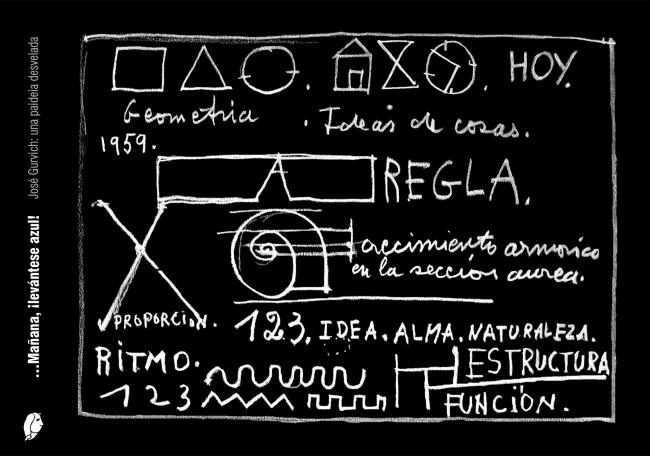 ...Mañana, ¡levántese azul!
José Gurvich: una paideia desvelada
HOY.
Geometría . Ideas de cosas.
1959.
REGLA.
crecimiento armonico
en la sección aurea.
PROPORCION.
123. IDEA. ALMA. NATURALEZA.
RITMO.
123
ESTRUCTURA
FUNCION.